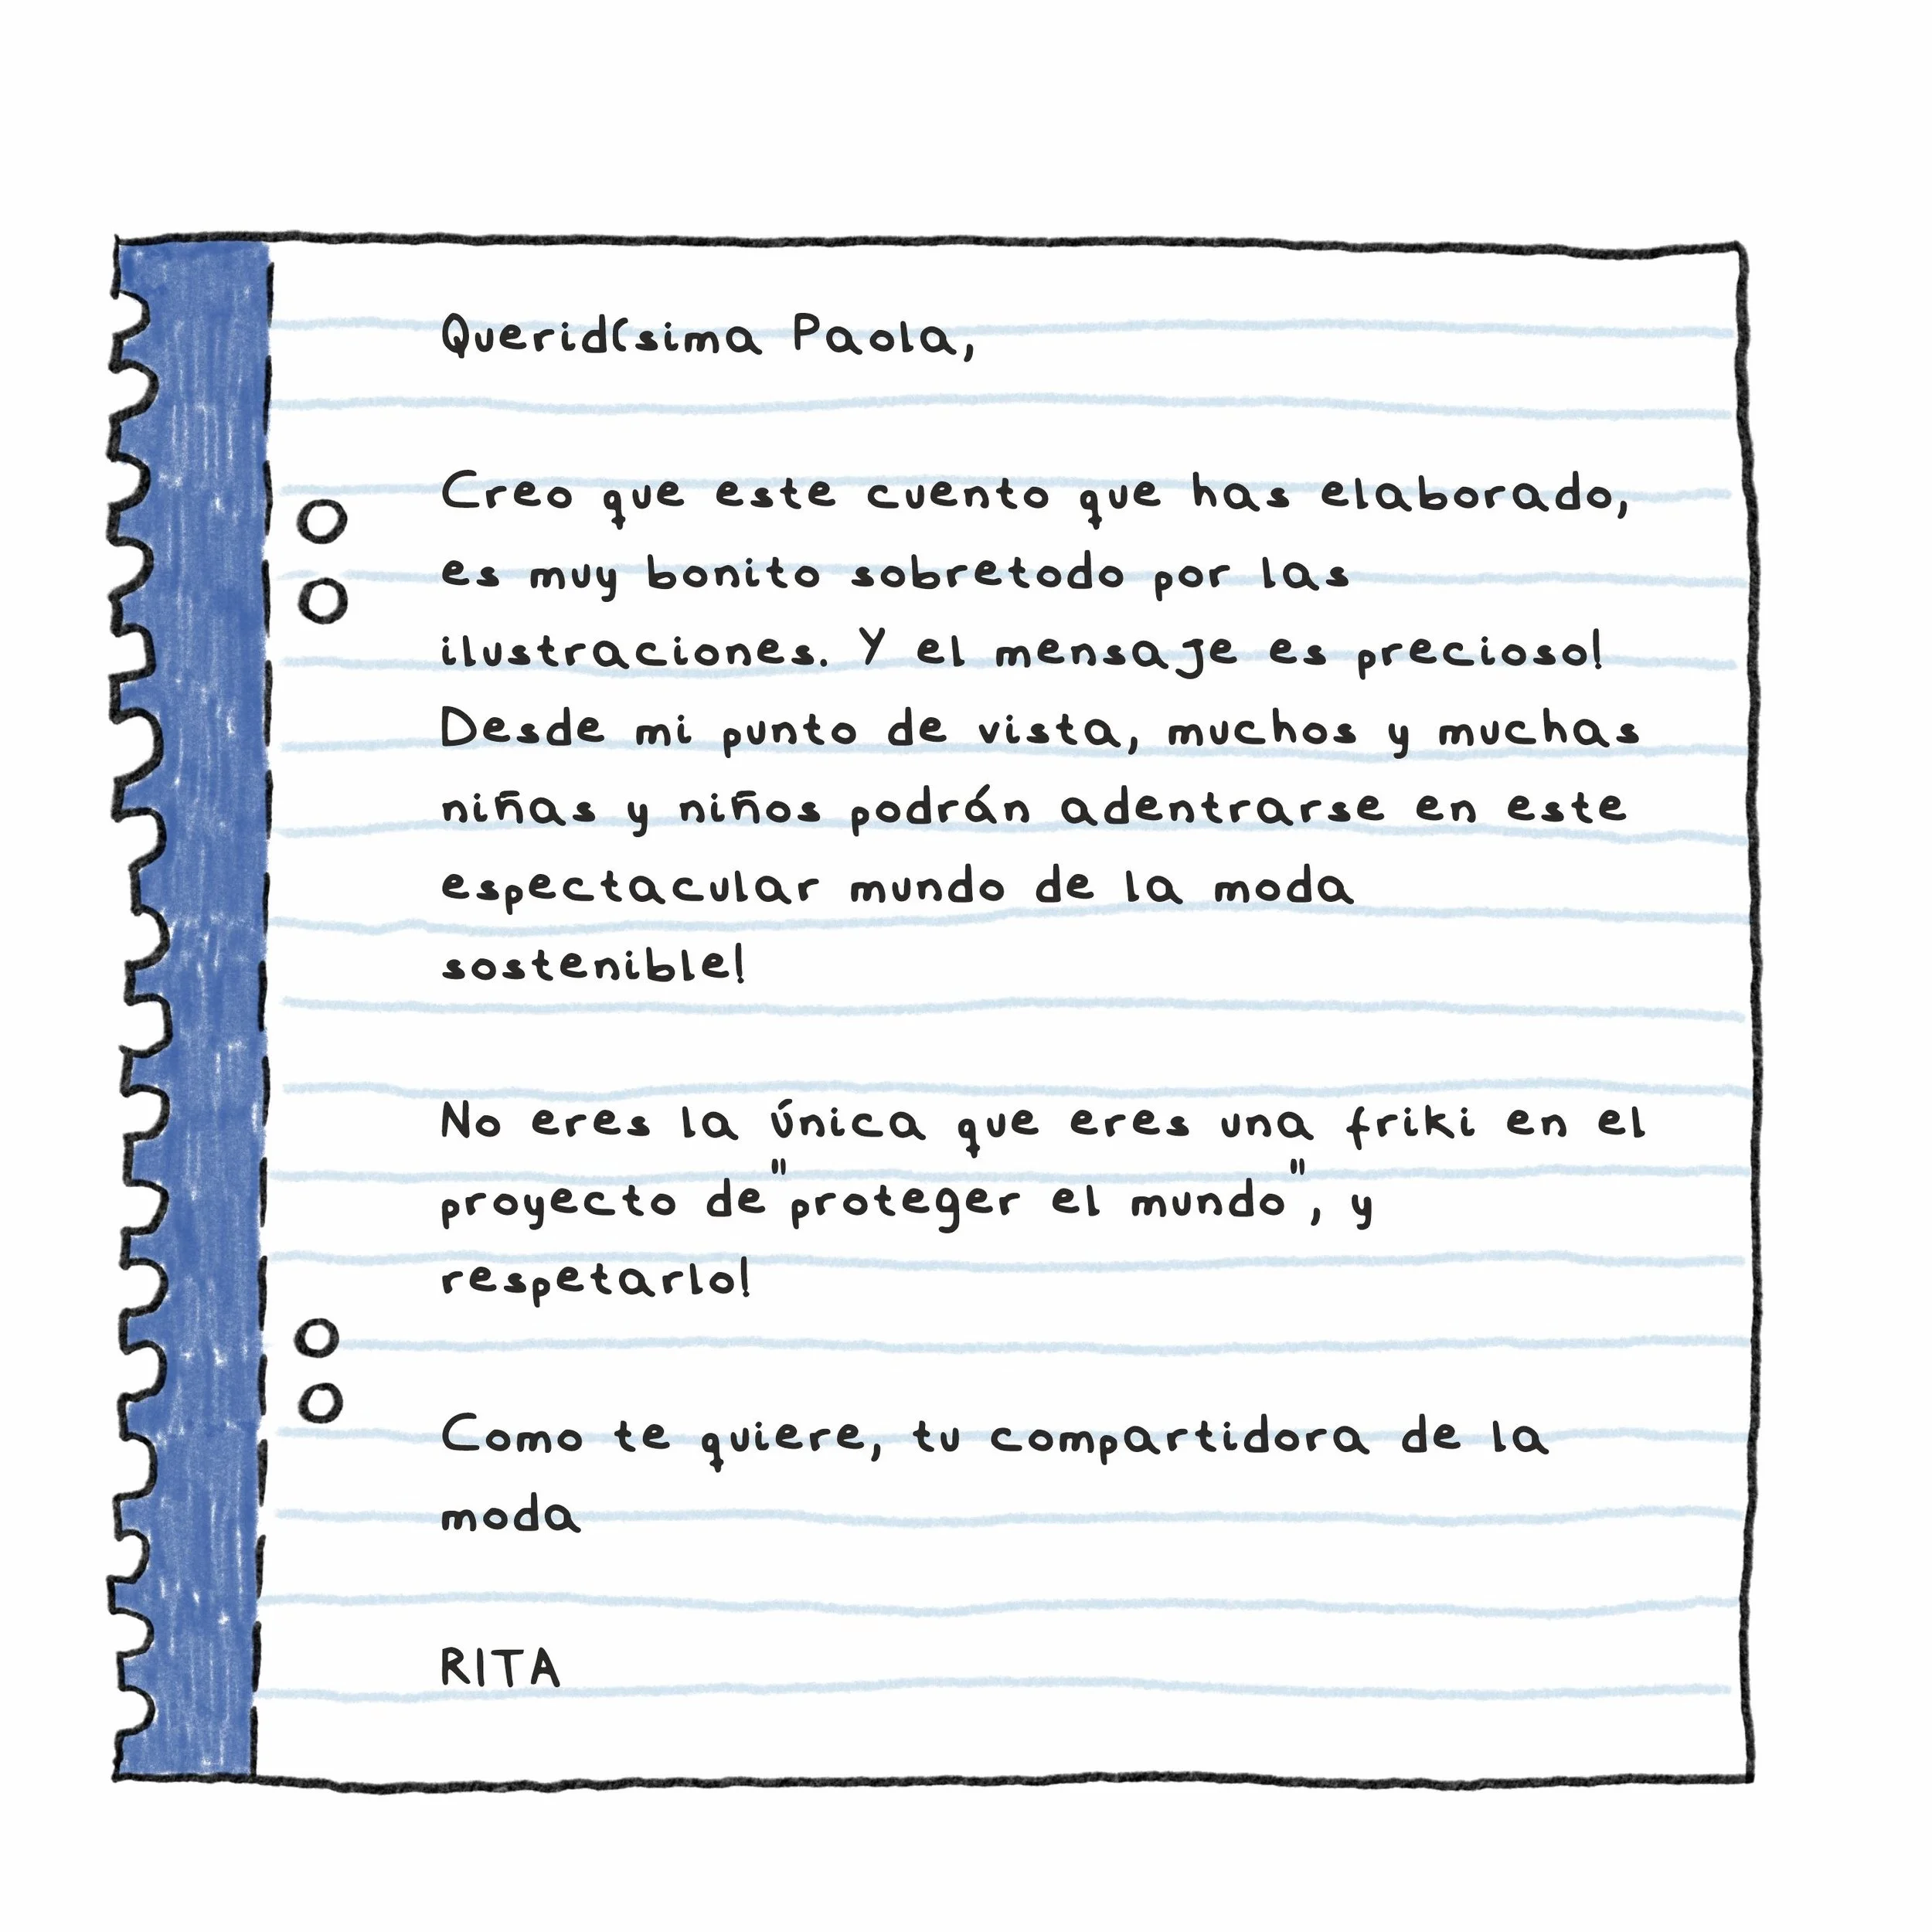 Queridísima Paola,
Creo que este cuento que has elaborado,
es muy bonito sobretodo por las
ilustraciones. Y el mensaje es precioso!
Desde mi punto de vista, muchos y muchas
niñas y niños podrán adentrarse en este
espectacular mundo de la moda
sostenible!
No eres la única que eres una friki en el
proyecto de "proteger el mundo", y
respetarlo!
Como te quiere, tu compartidora de la
moda
RITA